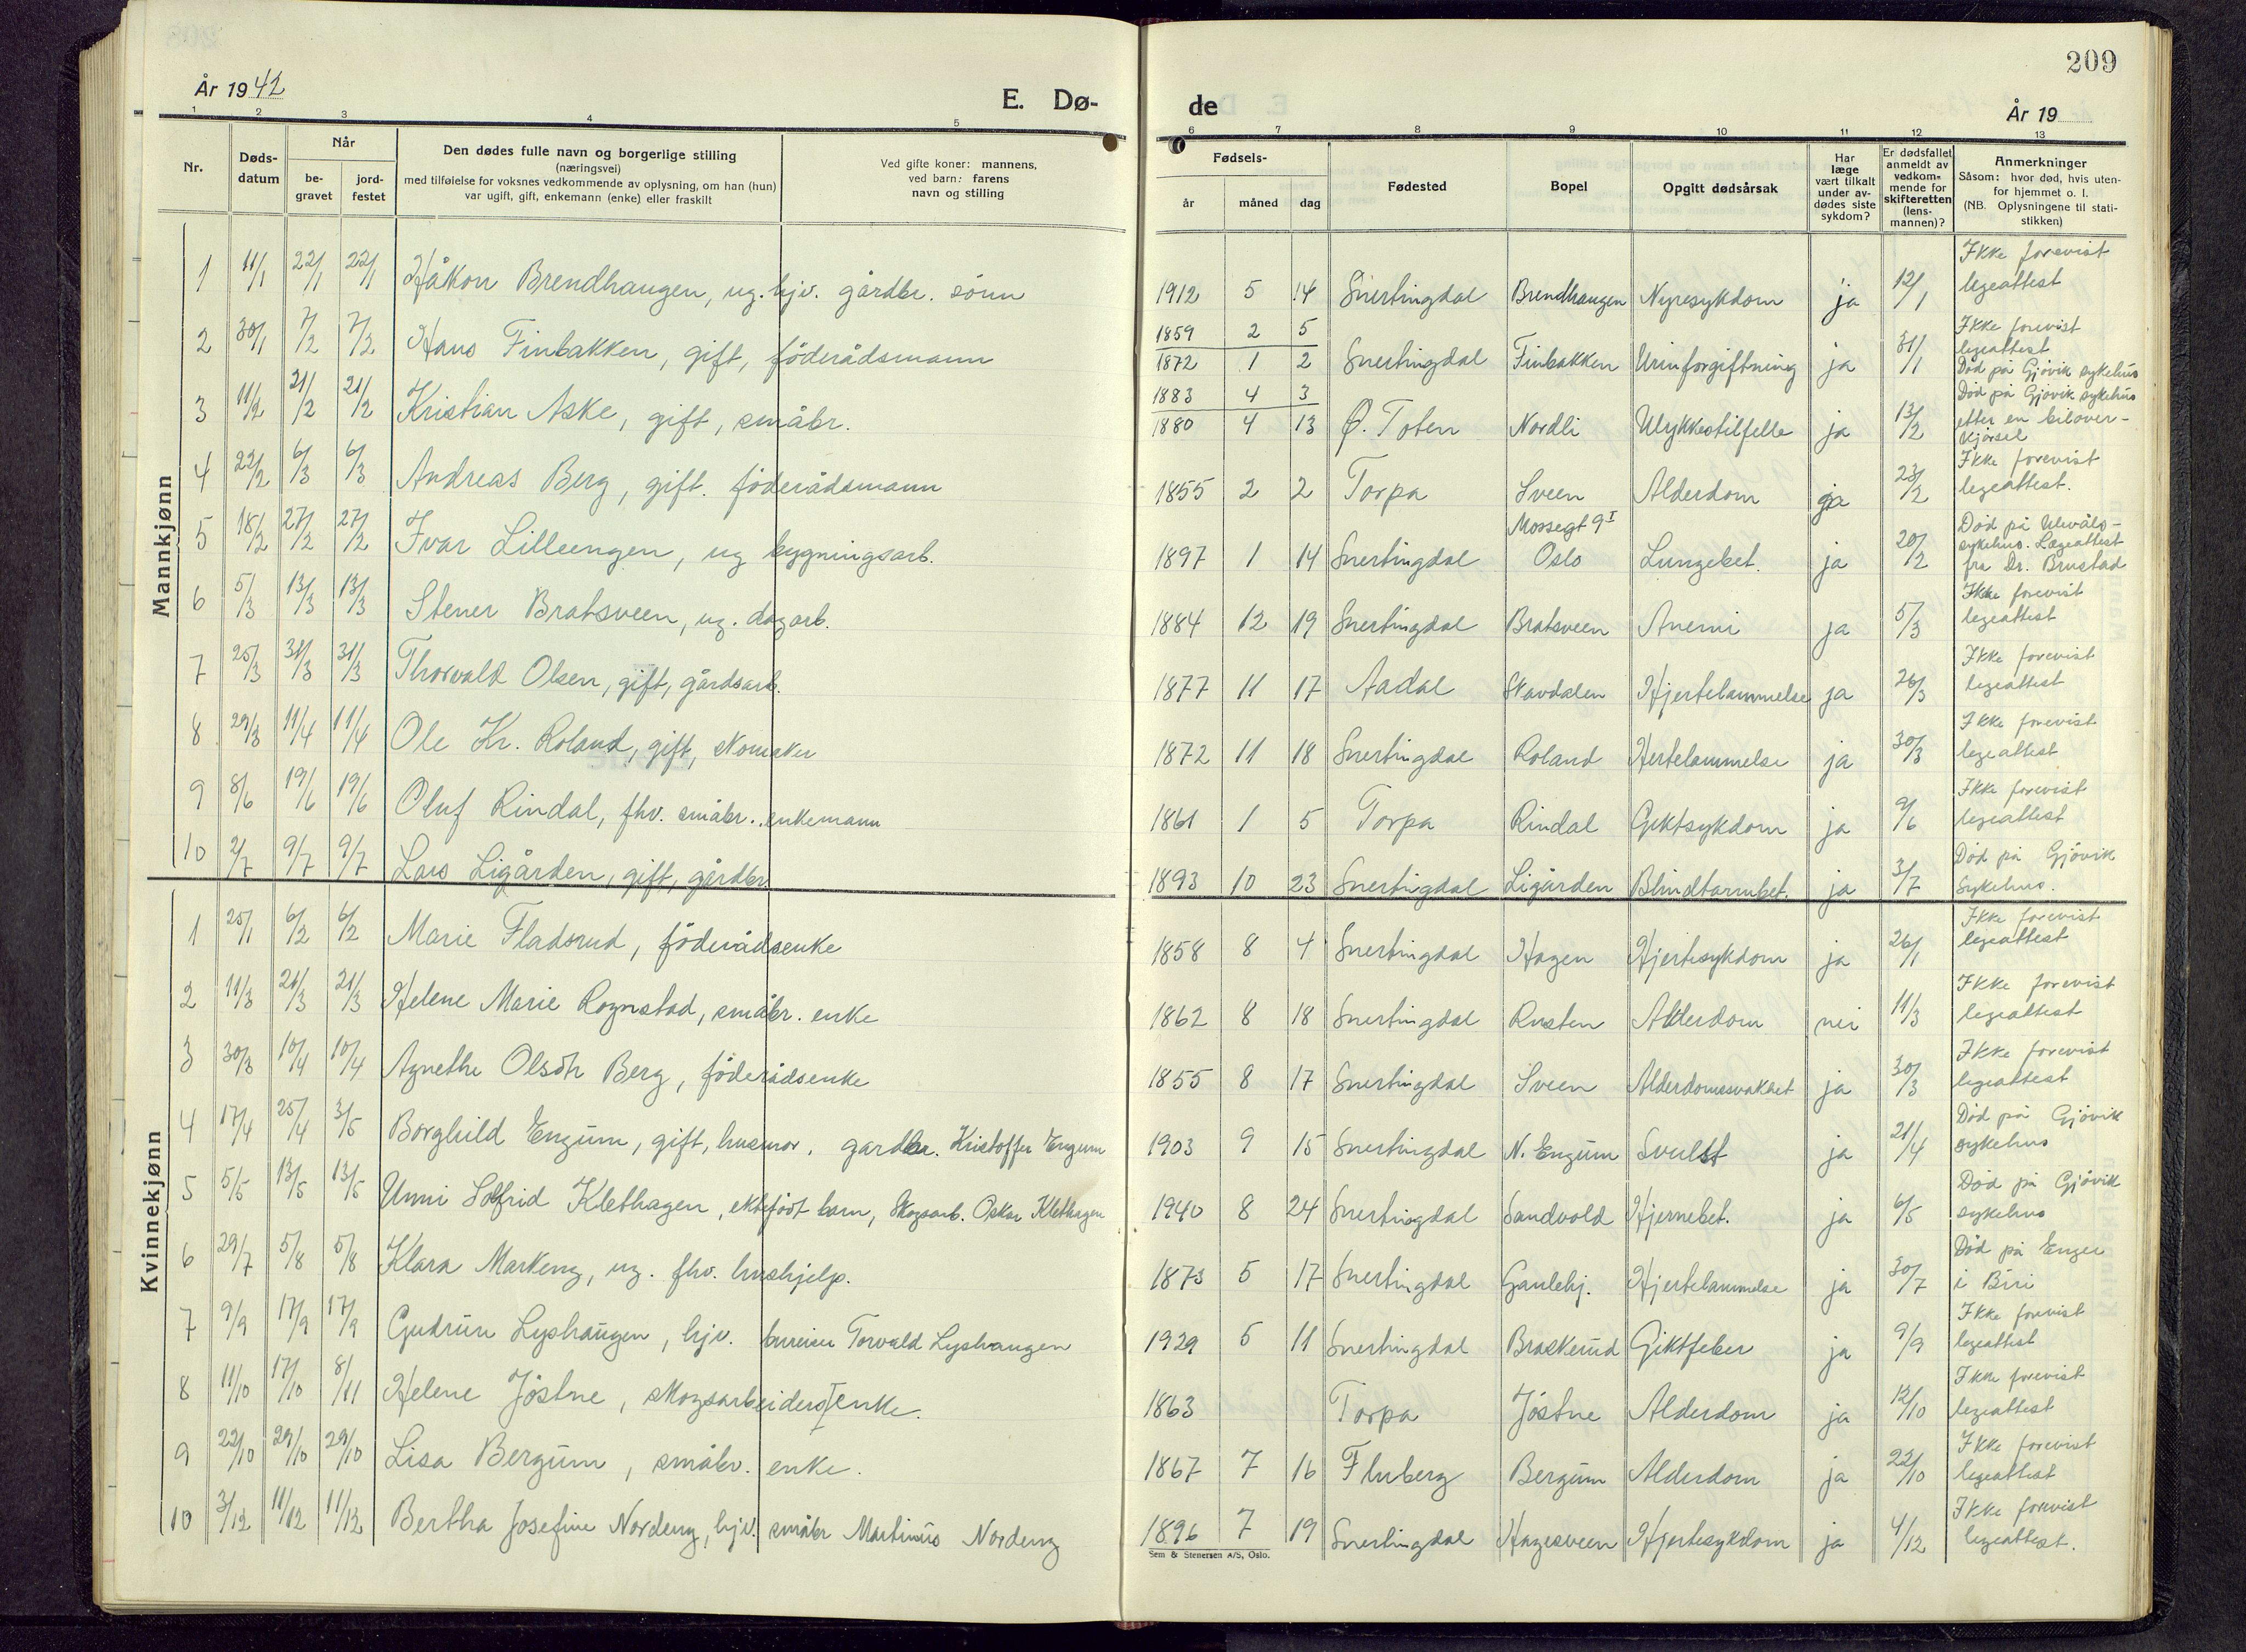 209
År 1942
E. Dø-
de
År 19
1 2 3 4 5
6 7 8 9 10 11 12 13
Nr.
Døds-
datum
Når
be-
gravet
jord-
festet
Den dødes fulle navn og borgerlige stilling
(næringsvei)
med tilføielse for voksnes vedkommende av oplysning, om han (hun)
var ugift, gift, enkemann (enke) eller fraskilt
Ved gifte koner: mannens,
ved barn: farens
navn og stilling
Fødsels-
år
måned
dag
Fødested
Bopel
Opgitt dødsårsak
Har
læge
vært tilkalt
under av-
dødes siste
sykdom?
Er dødsfallet
anmeldt av
vedkom-
mende for
skifteretten
(lens-
mannen)?
Anmerkninger
Såsom: hvor død, hvis uten-
for hjemmet o. l.
(NB. Oplysningene til stati-
stikken)
Mannkjønn
1 11/1 22/1 22/1 Håkon Brendhaugen, ug. hjv. gårdbr. sönn 1912 5 14 Snertingdal Brendhaugen Nyresykdom ja 12/1 Ikke forevist
legeattest
1859 2 5
2 30/1 7/2 7/2 Hans Finbakken, gift, föderådsmann 1872 1 2 Snertingdal Finbakken Urinforgiftning ja 31/1 Ikke forevist
legeattest
Död på Gjövik sykehus
1883 4 3
3 11/2 21/2 21/2 Kristian Aske, gift, småbr. 1880 4 13 Ø. Toten Nordli Ulykkestilfelle ja 13/2 Död på Gjövik sykehus
etter en bilover-
kjörsel
4 22/2 6/3 6/3 Andreas Berg, gift. föderådsmann 1855 2 2 Torpa Sveen Alderdom ja 23/2 Ikke forevist
legeattest.
5 18/2 27/2 27/2 Ivar Lilleengen, ug bygningsarb. 1897 1 14 Snertingdal Mossegt 9 I
Oslo Lungebet. ja 20/2 Död på Ulevåls-
sykehus. Lægeattest
fra Dr. Brustad
6 5/3 13/3 13/3 Stener Bratsveen, ug. dagarb. 1884 12 19 Snertingdal Bratsveen Anemi ja 5/3 Ikke forevist
legeattest
7 25/3 31/3 31/3 Thorvald Olsen, gift, gårdsarb. 1877 11 17 Aadal Skavdalen Hjertelammelse ja 26/3 Ikke forevist
legeattest
8 29/3 11/4 11/4 Ole Kr. Roland, gift, skomaker 1872 11 18 Snertingdal Roland Hertelammelse ja 30/3 Ikke forevist
legeattest
9 8/6 19/6 19/6 Oluf Rindal, fhv. småbr. enkemann 1861 1 5 Torpa Rindal Giktsykdom ja 9/6 Ikke forevist
legeattest
10 2/7 9/7 9/7 Lars Ligården, gift, gårdbr. 1893 10 23 Snertingdal Ligården Blindtarmbet. ja 3/7 Död på Gjövik
Sykehus.
Kvinnekjønn
1 25/1 6/2 6/2 Marie Fladsrud, föderådsenke 1858 8 4 Snertingdal Hagen Hjertesykdom ja 26/1 Ikke forevist
legeattest
2 11/3 21/3 21/3 Helene Marie Rognstad, småbr. enke 1862 8 18 Snertingdal Rusten Alderdom nei 11/3 Ikke forevist
legeattest
3 30/3 10/4 10/4 Agnethe Olsdtr Berg, föderådsenke 1855 8 17 Snertingdal Sveen Alderdomssvakhet ja 30/3 Ikke forevist
legeattest
4 17/4 25/4 3/5 Borghild Engum, gift, husmor, gardbr. Kristoffer Engum 1903 9 15 Snertingdal N. Engum Svulst ja 21/4 Död på Gjövik
sykehus
5 5/5 13/5 13/5 Unni Solfrid Klethagen, ektefödt barn, Skogsarb. Oskar Klethagen 1940 8 24 Snertingdal Sandvold Hjernebet. ja 6/5 Död på Gjövik
sykehus
6 29/7 5/8 5/8 Klara Markeng, ug. fhv. hushjelp. 1873 5 17 Snertingdal Gaulehj. Hjertelammelse ja 30/7 Död på Enger
i Biri
7 9/9 17/9 17/9 Gudrun Lyshaugen, hjv. bureiser Torvald Lyshaugen 1929 5 11 Snertingdal Braskerud Giktfeber ja 9/9 Ikke forevist
legeattest
8 11/10 17/10 8/11 Helene Jöstne, skogsarbeiders enke. 1863 Torpa Jöstne Alderdom ja 12/10 Ikke forevist
legeattest
9 22/10 29/10 29/10 Lisa Bergum, småbr. enke. 1867 7 16 Fluberg Bergum Alderdom ja 22/10 Ikke forevist
legeattest
10 3/12 11/12 11/12 Bertha Josefine Nordeng, hjv. småbr Martinus Nordeng 1896 7 19 Snertingdal Hagesveen Hjertesykdom ja 4/12 Ikke forevist
legeattest.
Sem & Stenersen A/S, Oslo.